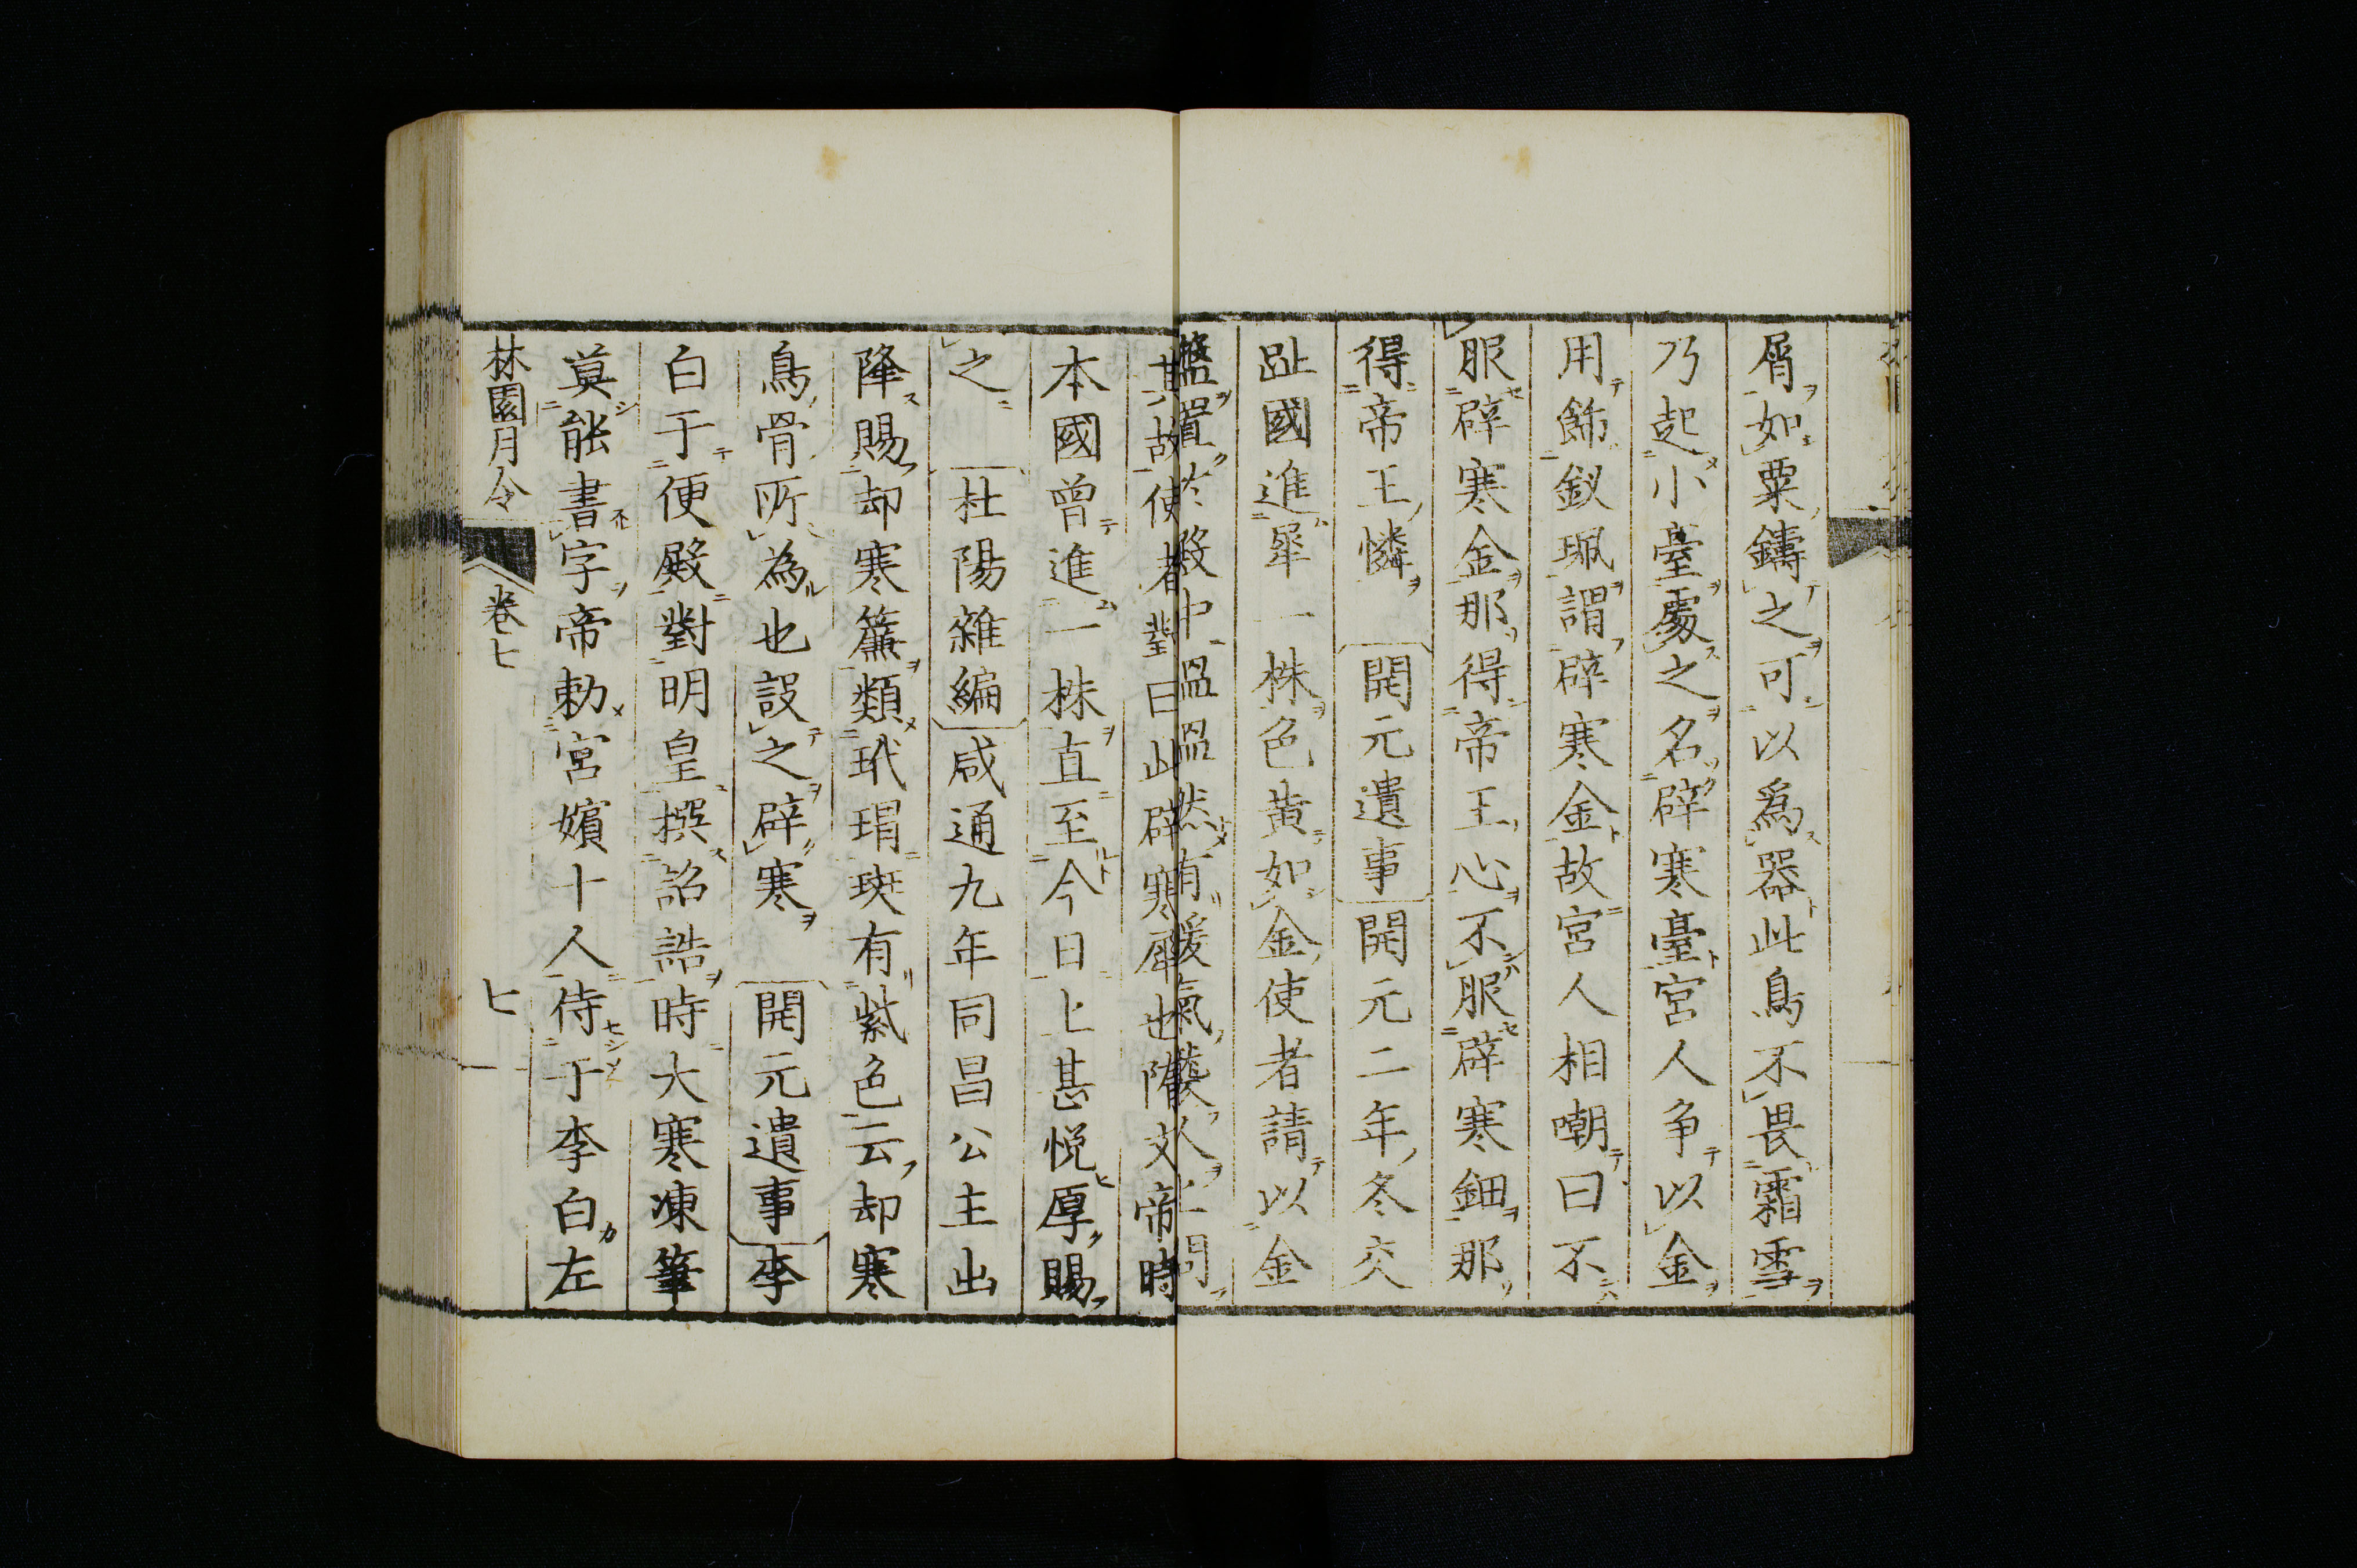 屑如粟鑄之可以爲器此鳥不畏霜雪
乃起小臺處之名辟寒臺宮人争以金
用飾釵珮謂辟寒金故宮人相嘲曰不
服辟寒金那得帝王心不服辟寒鈿那
得帝王憐 開元遺事 開元二年冬交
趾國進犀一株色黄如金使者請以金
盤置於殿中溫溫然有暖氣襲人上問
其故使者對曰此辟寒犀也隋文帝時
本國曾進一株直至今日上甚悦厚賜
之 杜陽雜編 咸通九年同昌公主出
降賜却寒簾類玳瑁斑有紫色云却寒
鳥骨所為也設之辟寒 開元遺事 李
白于便殿對明皇撰詔誥時大寒凍筆
莫能書字帝勅宮嬪十人侍于李白左
林園月令 卷七 七